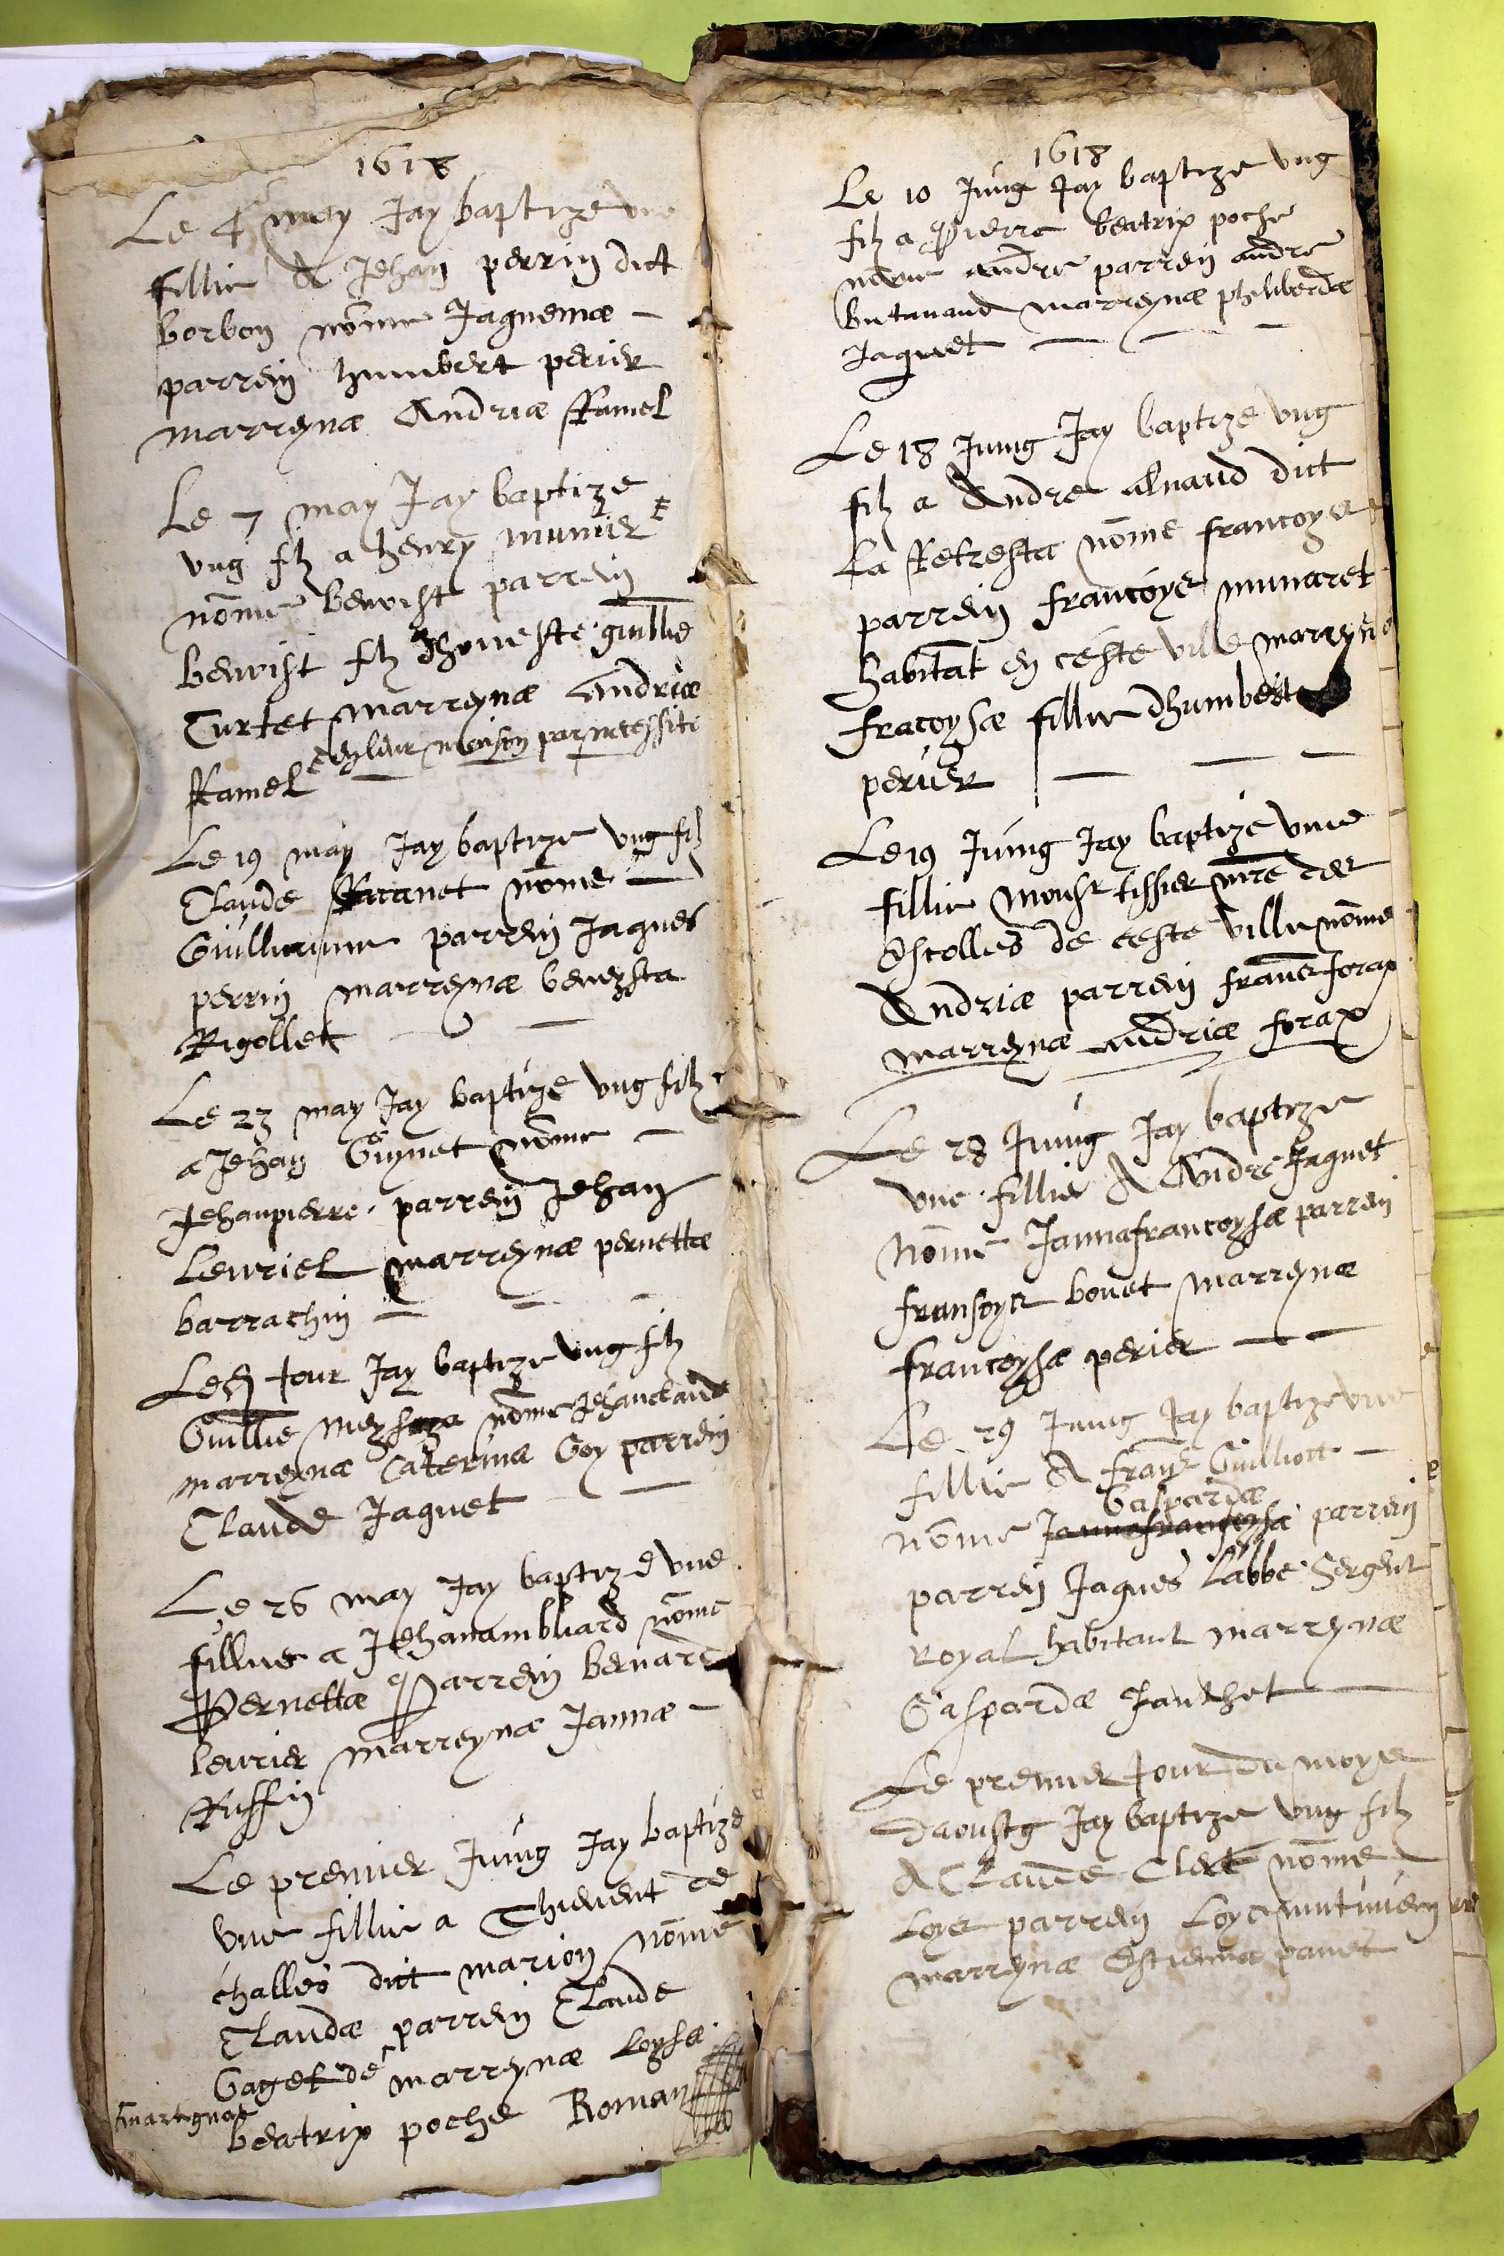 1618
Le 4 may Jay baptize vne
fillie A Jehan perrin dict
borbon nōme Jaquemæ
parrein humbert perier
marreynæ Andriæ Ramel
Le 7 may Jay baptize
vng filz a henry munier
nōme benoist parrein
benoist filz dhoneste guillē
Turtet marreynæ Andriæ
Ramel en leur maison par necessite
Le 19 may Jay baptize vng filz
Claude nōme
Guilliaume parrein Jaques
perrin marreynæ benoysta
Rigollet
Le 23 may Jay baptize vng filz
a Jehan Guynet nōme
Jehanpierre parrein Jehan
leuriel marreynæ pernettæ
barrachin
Led jour Jay baptize vng filz
Guillē nōme Jehanclaude
marreynæ Caterina Goy parrein
Claude Jaquet
Le 26 may Jay baptize vne
fillie a Jehan ambliard nōme
Pernettæ Parrein bernard
leurier marreynæ Jannæ
Ruffin
Le premier Juing Jay baptize
vne fillie a Thieuent de
challes dict marion nōme
Claudæ parrein Claude
Gaget de marreynæ Loysæ
martignat
beatrix poche Roman
1618
Le 10 Juing Jay baptize vng
filz a Pierre beatrix poche
nōme andre parrein andre
butauand marreynæ philiberdæ
Jaquet
Le 18 Juing Jay baptize vng
filz a Andre aluand dict
La Retresta nōme francoys
parrein francoys munaret
habitāt en ceste ville marreyne
fracoysæ fillie dhumbert
perier
Le 19 Juing Jay baptize vnne
fillie monsr tissier mre des
Escolles de ceste ville nōme
Andriæ parrein francs forax
marreynæ andriæ forax
Le 28 Juing Jay baptize
vne fillie A Andre Jaquet
nōme Jannafrancoysæ parrein
fransoys bouet marreynæ
francoysæ perier
Le 29 Juing Jay baptize vne
fillie A frans Guilliott
Gaspardæ
nōme Jannafrancoysæ parrein
parrein Jaques Labbe Sergent
royal habitant marreynæ
Gaspardæ Fauchet
Le premier Jour du moys
daoustg Jay baptize vng filz
A Claude Clert nōme
Loys parrein Loys
marreynæ Estiennæ panet